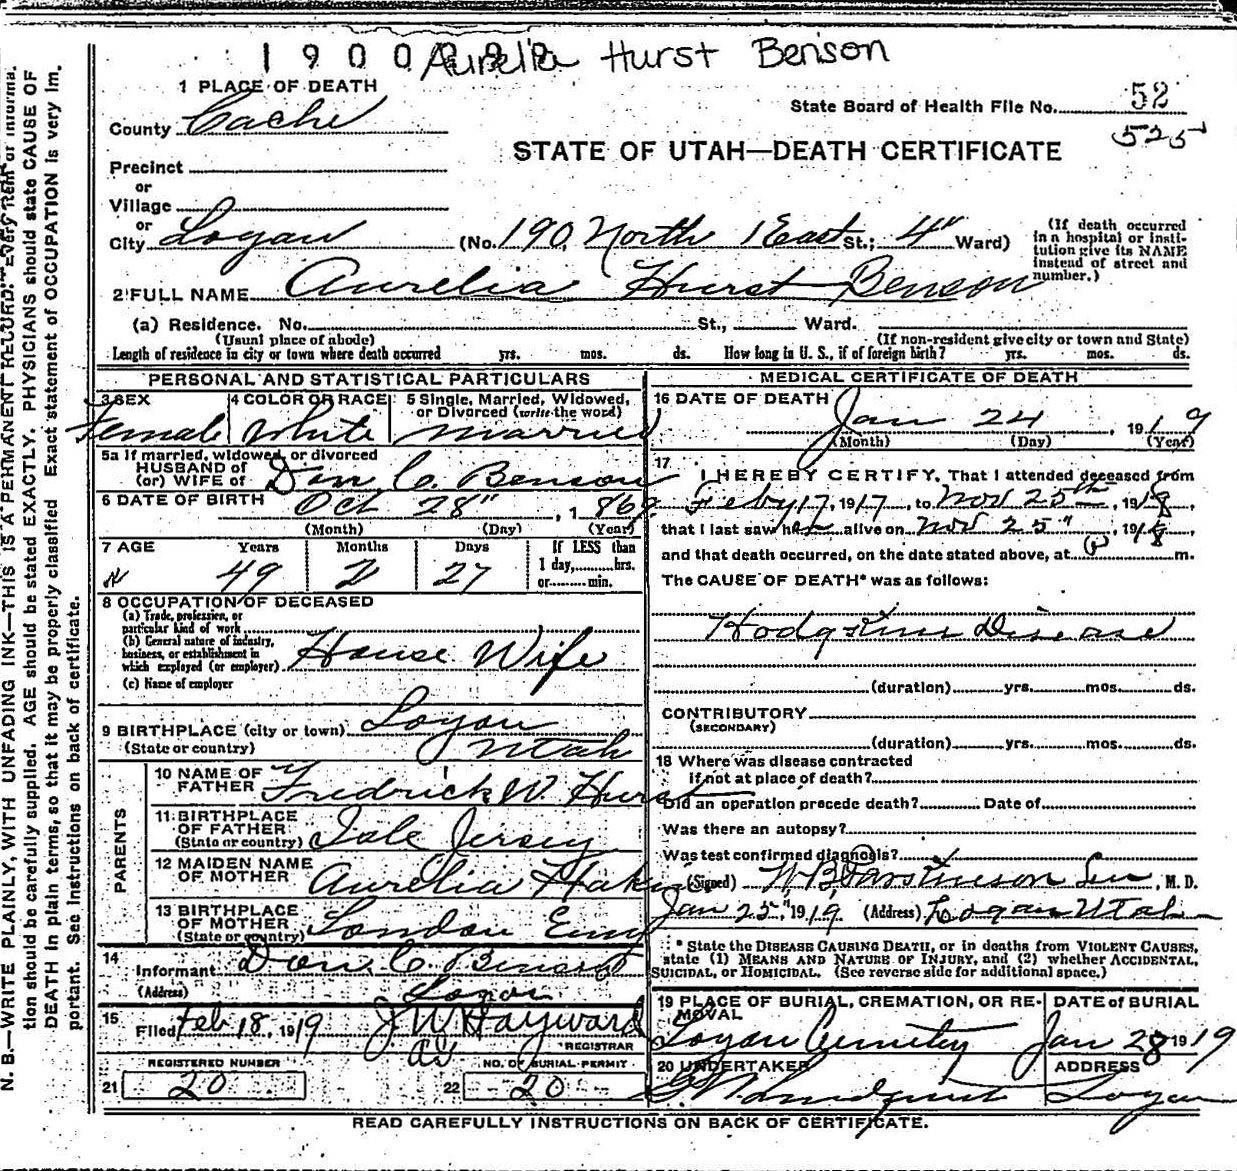 1 9 0 0 Aurelia Hurst Benson
1 PLACE OF DEATH
State Board of Health File No. 52
525
County Cache
STATE OF UTAH—DEATH CERTIFICATE
Precinct
or
Village
or
City Logan (No. 190 North 1 East St.; 4" Ward)
(If death occurred in a hospital or insti-
tution give its NAME instead of street and number.)
2 FULL NAME Aurelia Hurst Benson
(a) Residence. No. St., Ward.
(Usual place of abode) (If non-resident give city or town and State)
Length of residence in city or town where death occurred yrs. mos. ds. How long in U. S., if of foreign birth? yrs. mos. ds.
PERSONAL AND STATISTICAL PARTICULARS
3 SEX 4 COLOR OR RACE 5 Single, Married, Widowed,
or Divorced (write the word)
Female White Married
5a If married, widowed, or divorced
HUSBAND of
(or) WIFE of Don C. Benson
6 DATE OF BIRTH Oct 28" , 1 869
(Month) (Day) (Year)
7 AGE Years Months Days If LESS than
1 day,.....hrs.
or.....min.
49 2 27
8 OCCUPATION OF DECEASED
(a) Trade, profession, or
particular kind of work
(b) General nature of industry,
business, or establishment in
which employed (or employer) House Wife
(c) Name of employer
9 BIRTHPLACE (city or town) Logan
(State or country) Utah
PARENTS
10 NAME OF
FATHER Fredrick W. Hurst
11 BIRTHPLACE
OF FATHER
(State or country) Isle Jersey
12 MAIDEN NAME
OF MOTHER Aurelia
13 BIRTHPLACE
OF MOTHER
(State or country) London Eng
14
Informant Don. C. Benson
(Address) Logan
15
Filed Feb 18, 1919 J W Hayward
REGISTRAR
REGISTERED NUMBER NO. OF BURIAL PERMIT
21 20 22 20
MEDICAL CERTIFICATE OF DEATH
16 DATE OF DEATH Jan 24 , 191 9
(Month) (Day) (Year)
17
I HEREBY CERTIFY, That I attended deceased from
Feby 17, 1917, to Nov 25th, 1918,
that I last saw her alive on Nov 25", 1918,
and that death occurred, on the date stated above, at P m.
The CAUSE OF DEATH* was as follows:
Hodgkins Disease
(duration) yrs. mos. ds.
CONTRIBUTORY
(SECONDARY)
(duration) yrs. mos. ds.
18 Where was disease contracted
if not at place of death?
Did an operation precede death? Date of
Was there an autopsy?
Was test confirmed diagnosis?
(Signed) W B Parkinson Sen , M. D.
Jan 25," 1919. (Address) Logan Utah
* State the DISEASE CAUSING DEATH, or in deaths from VIOLENT CAUSES,
state (1) MEANS AND NATURE OF INJURY, and (2) whether ACCIDENTAL,
SUICIDAL, or HOMICIDAL. (See reverse side for additional space.)
19 PLACE OF BURIAL, CREMATION, OR RE-
MOVAL DATE of BURIAL
Logan Cemetery Jan 28 1919
20 UNDERTAKER ADDRESS
Lindquist Logan
READ CAREFULLY INSTRUCTIONS ON BACK OF CERTIFICATE.
N. B.—WRITE PLAINLY, WITH UNFADING INK—THIS IS A PERMANENT RECORD. Every item of informa-
tion should be carefully supplied. AGE should be stated EXACTLY. PHYSICIANS should state CAUSE OF
DEATH in plain terms, so that it may be properly classified Exact statement of OCCUPATION is very im-
portant. See instructions on back of certificate.